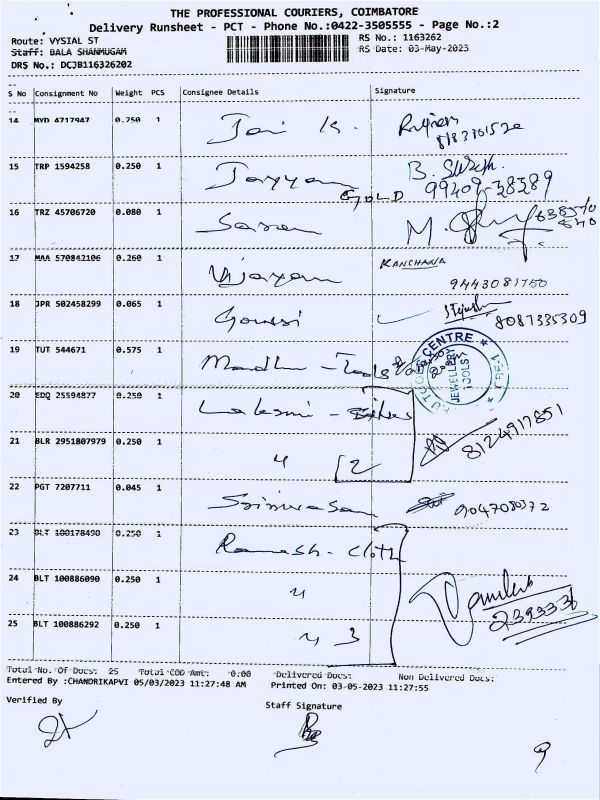 THE PROFESSIONAL COURIERS, COIMBATORE
Delivery Runsheet - PCT - Phone No.:0422-3505555 - Page No.:2
Route: VYSIAL ST RS No.: 1163262
Staff: BALA SHANMUGAM RS Date: 03-May-2023
DRS No.: DCJB116326202
S No Consignment No Weight PCS Consignee Details Signature
14 MYD 4717947 0.250 1 Jai K.
15 TRP 1594258 0.250 1 Jayyam GOLD B. Suresh. 99409-38389
16 TRZ 45706720 0.080 1 Saran
17 MAA 570842106 0.260 1 Vijayam KANCHANA 9443081750
18 JPR 502458299 0.065 1 Gowri 8087335309
19 TUT 544671 0.575 1 Madhu - Tools CENTRE JEWELLERY TOOLS
20 EDQ 25594877 0.250 1 Lakshmi -
21 BLR 2951807979 0.250 1 " 2 8124917851
22 PGT 7207711 0.045 1 Srinivasan 9047080372
23 BLT 100178490 0.250 1 Ramesh - Cloth
24 BLT 100886090 0.250 1 "
25 BLT 100886292 0.250 1 " 3 2393336
Total No. Of Docs: 25 Total COD Amt: 0.00 Delivered Docs: Non Delivered Docs:
Entered By :CHANDRIKAPVI 05/03/2023 11:27:48 AM Printed On: 03-05-2023 11:27:55
Verified By Staff Signature